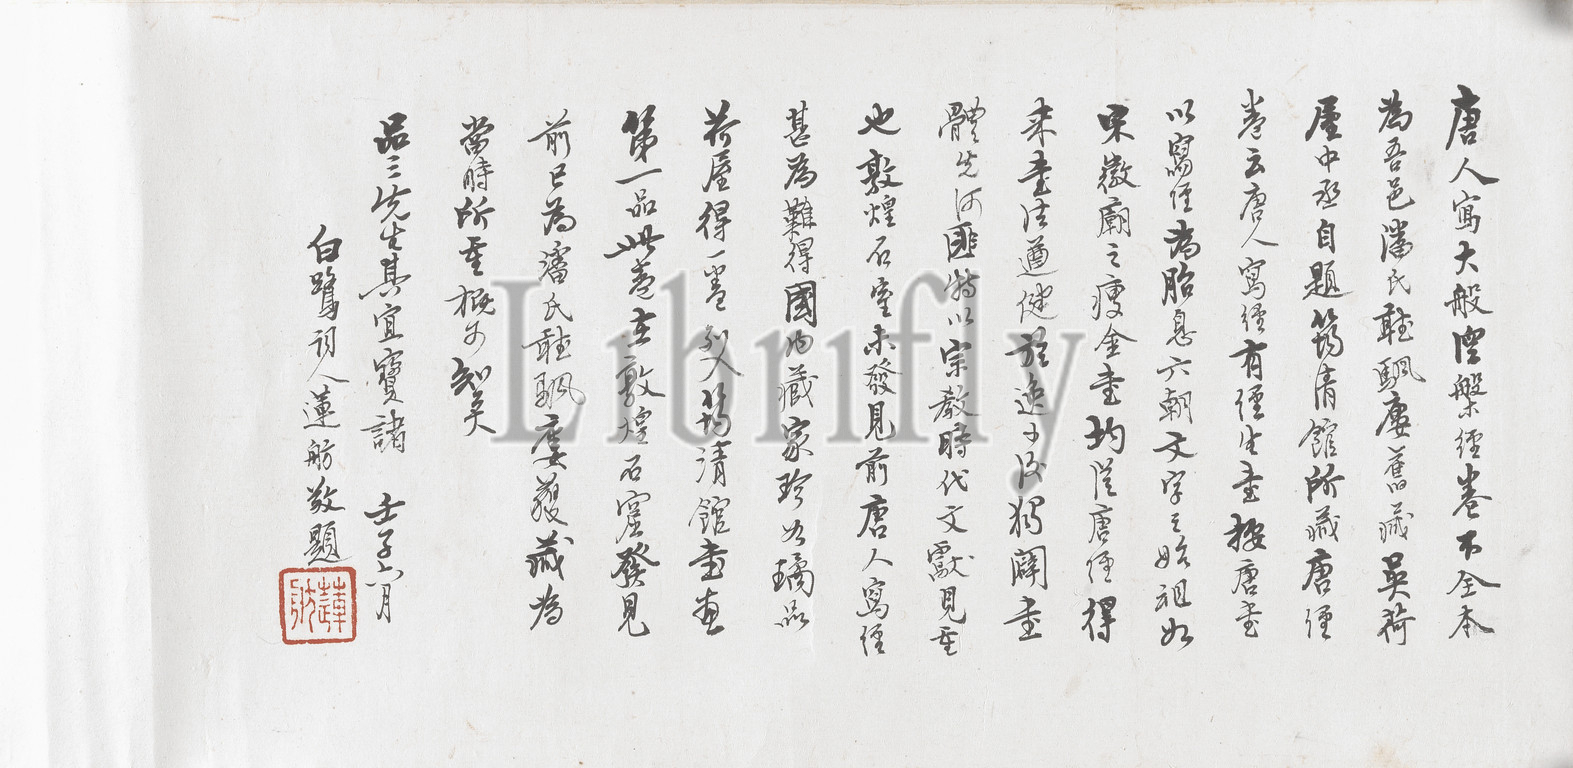 唐人寫大般涅槃經卷不全本
為吾邑潘氏聽颿廔舊藏吳荷
屋中丞自題筠清館所藏唐經
卷云唐人寫經有經生書按唐書
以寫經為胎息六朝文字之始祖如
宋徽廟之瘦金書均從唐經得
來書法遒健於逸少後獨闢書
體先河匪特以宗教時代文獻見重
也敦煌石室未發見前唐人寫經
甚為難得國內藏家珍如璃品
荷屋得一卷列入筠清館書畫
第一品此卷在敦煌石窟發見
前已為潘氏聽颿廔蒐藏為
當時所重概可知矣
品三先生其宜寶諸 壬子六月
白鷺詞人蓮舫敬題
蓮舫
Librifly